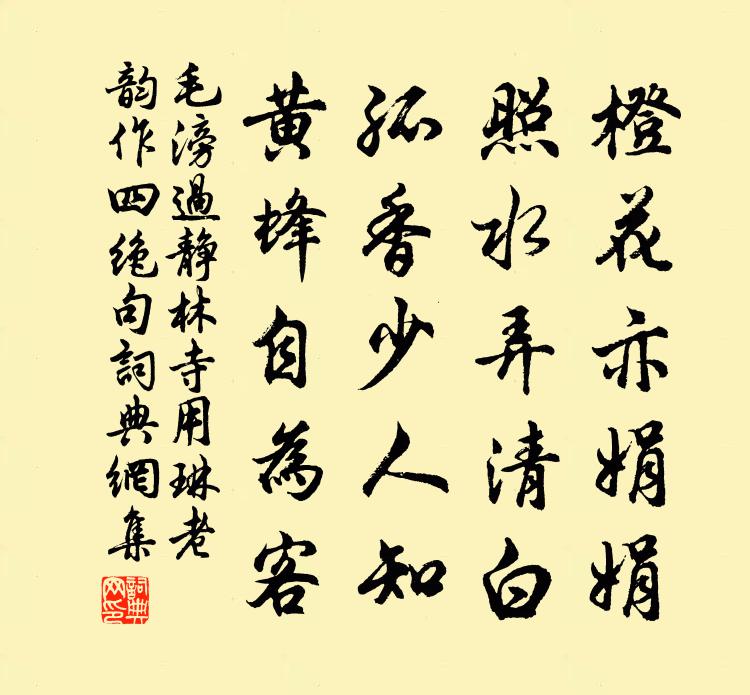 橙花亦娟娟
照水弄清白
孤香少人知
黄蜂自為客
毛滂過静林寺用琳老
韵作四絶句詞典網集
詞典網印